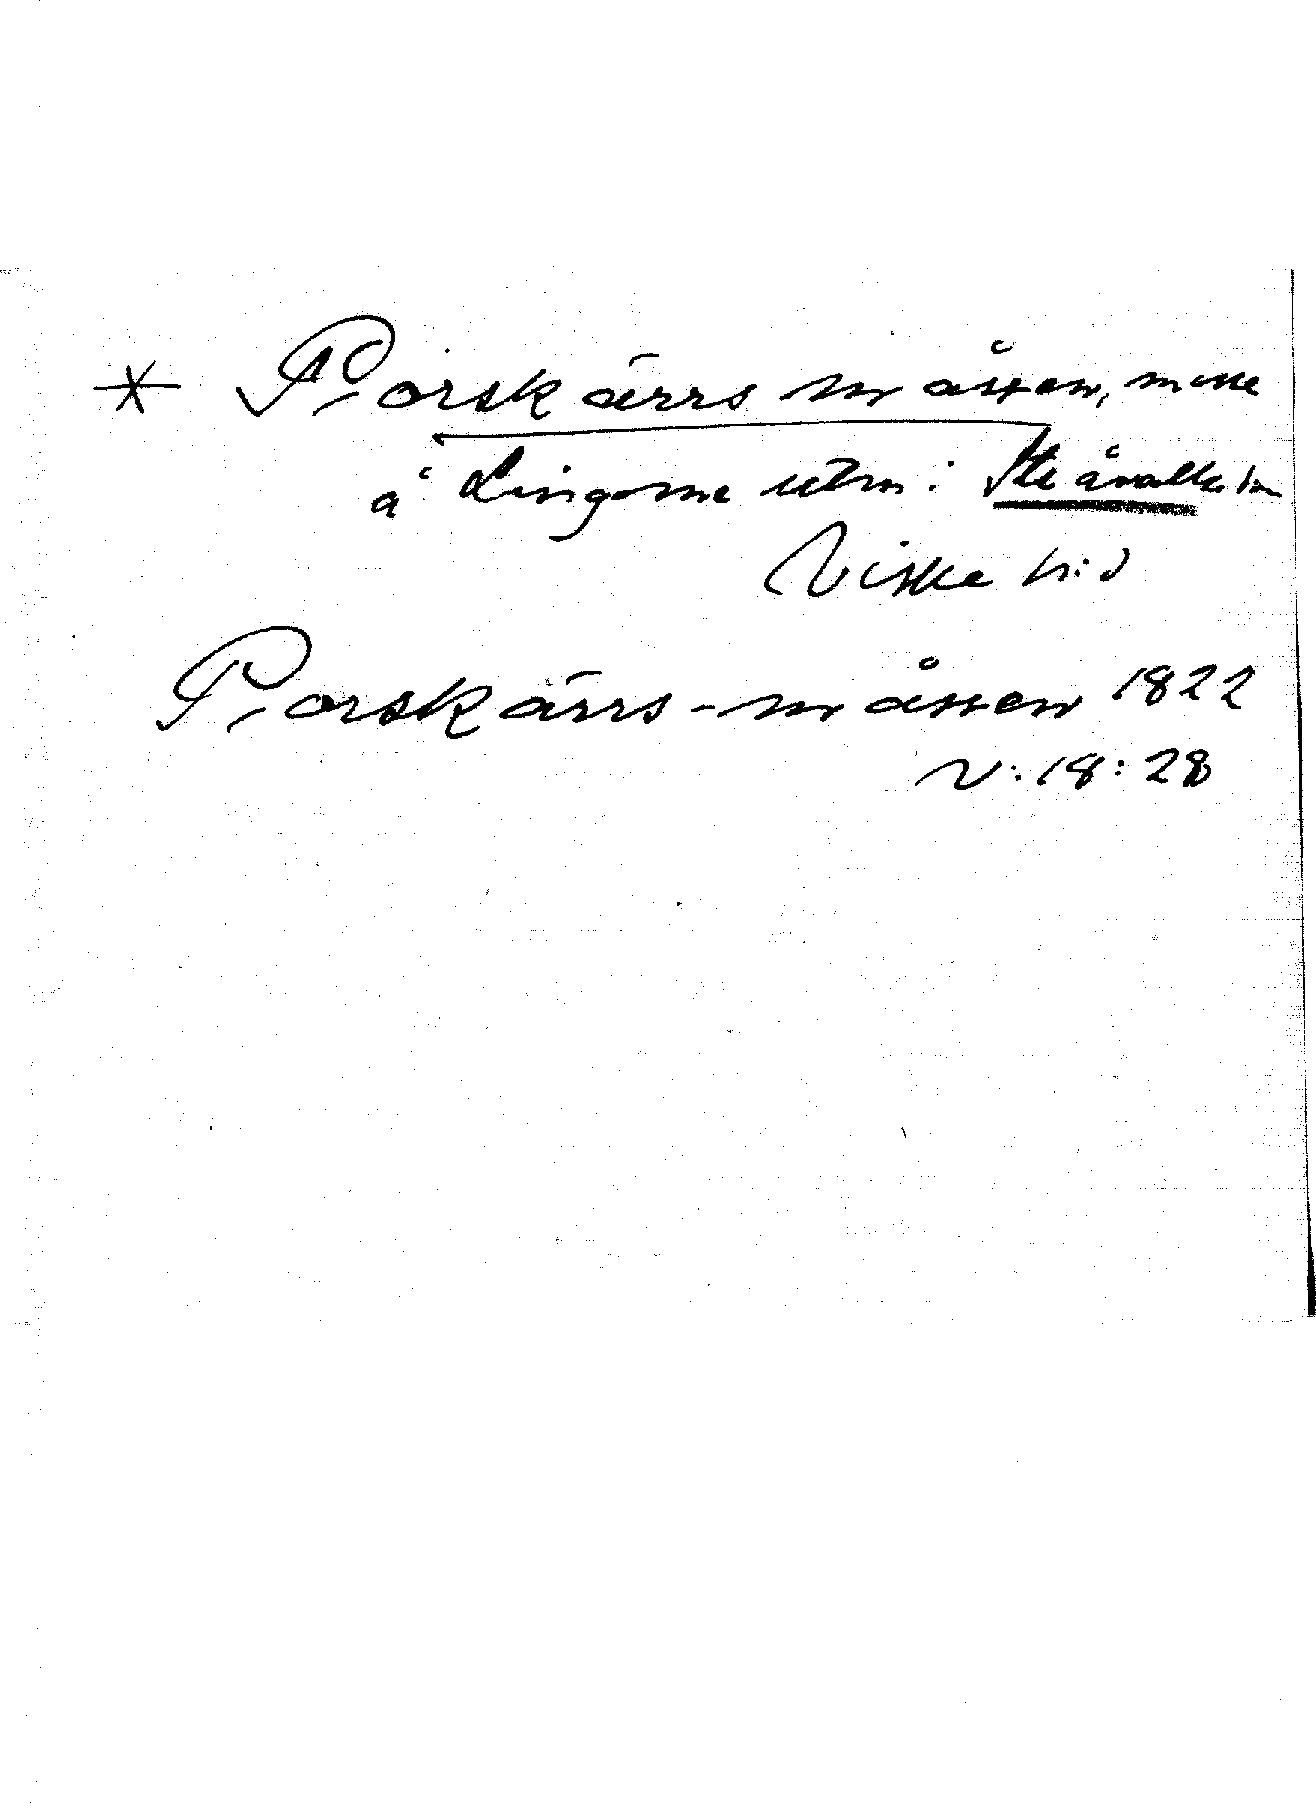 * Porskärrsmåssen, mosse
å Lingome utm: Stråvalla sn
Viske hd
Porskärrs-måssen 1822
N:18:28